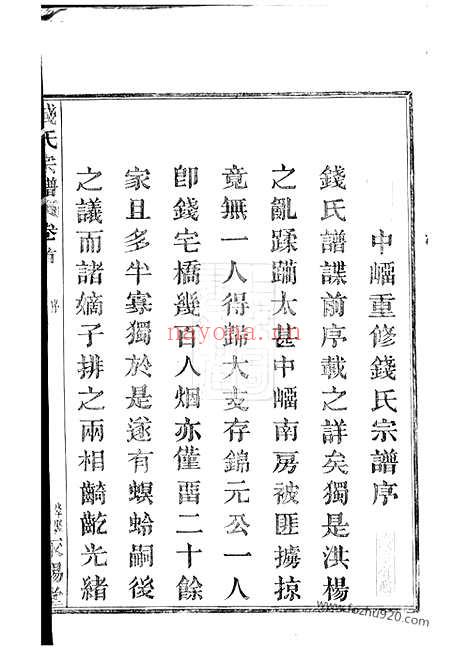 中崓重修錢氏宗譜序
錢氏譜諜前序載之詳矣獨是洪楊
之亂蹂躪太甚中崓南房被匪擄掠
竟無一人得歸大支存錦元公一人
卽錢宅橋幾百人烟亦僅畱二十餘
家且多半寡獨於是遂有螟蛉嗣後
之議而諸嫡子排之兩相齮齕光緒
錢氏宗譜
卷首
序
nayona.cn
www.fozhu920.com